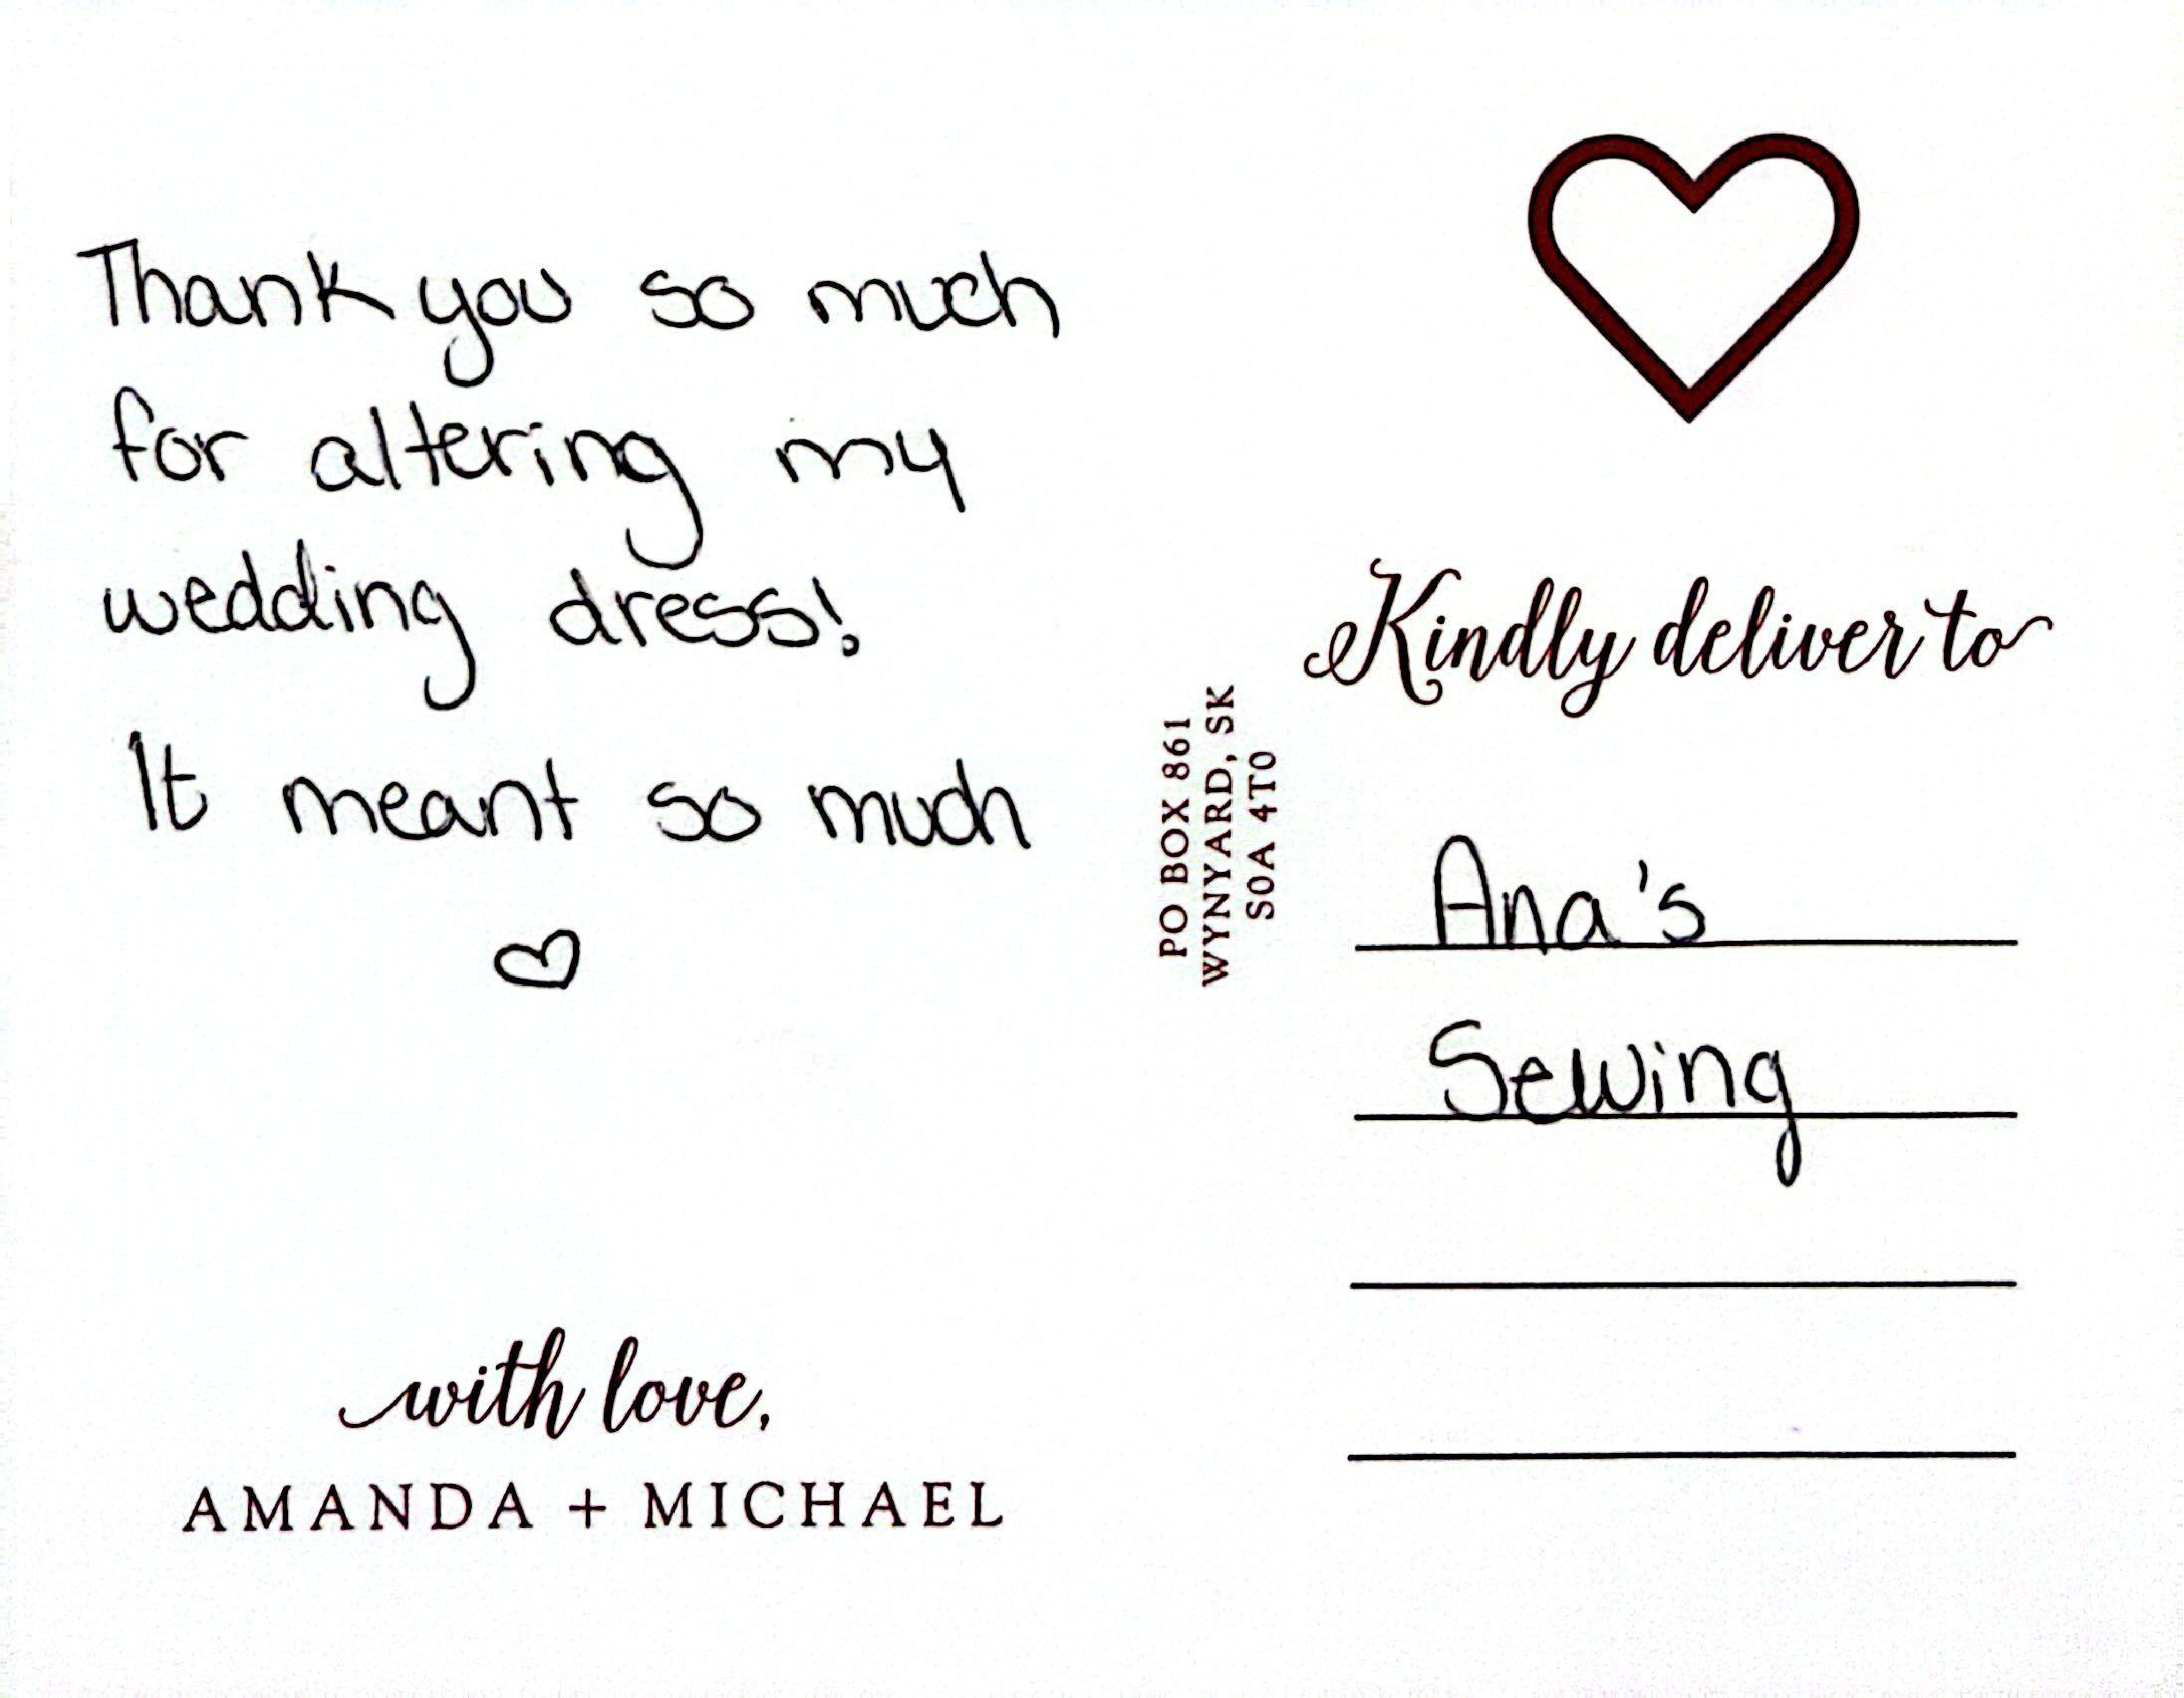 Thank you so much
for altering my
wedding dress!
It meant so much
with love,
AMANDA + MICHAEL
PO BOX 861
WYNYARD, SK
S0A 4T0
Kindly deliver to
Ana's
Sewing